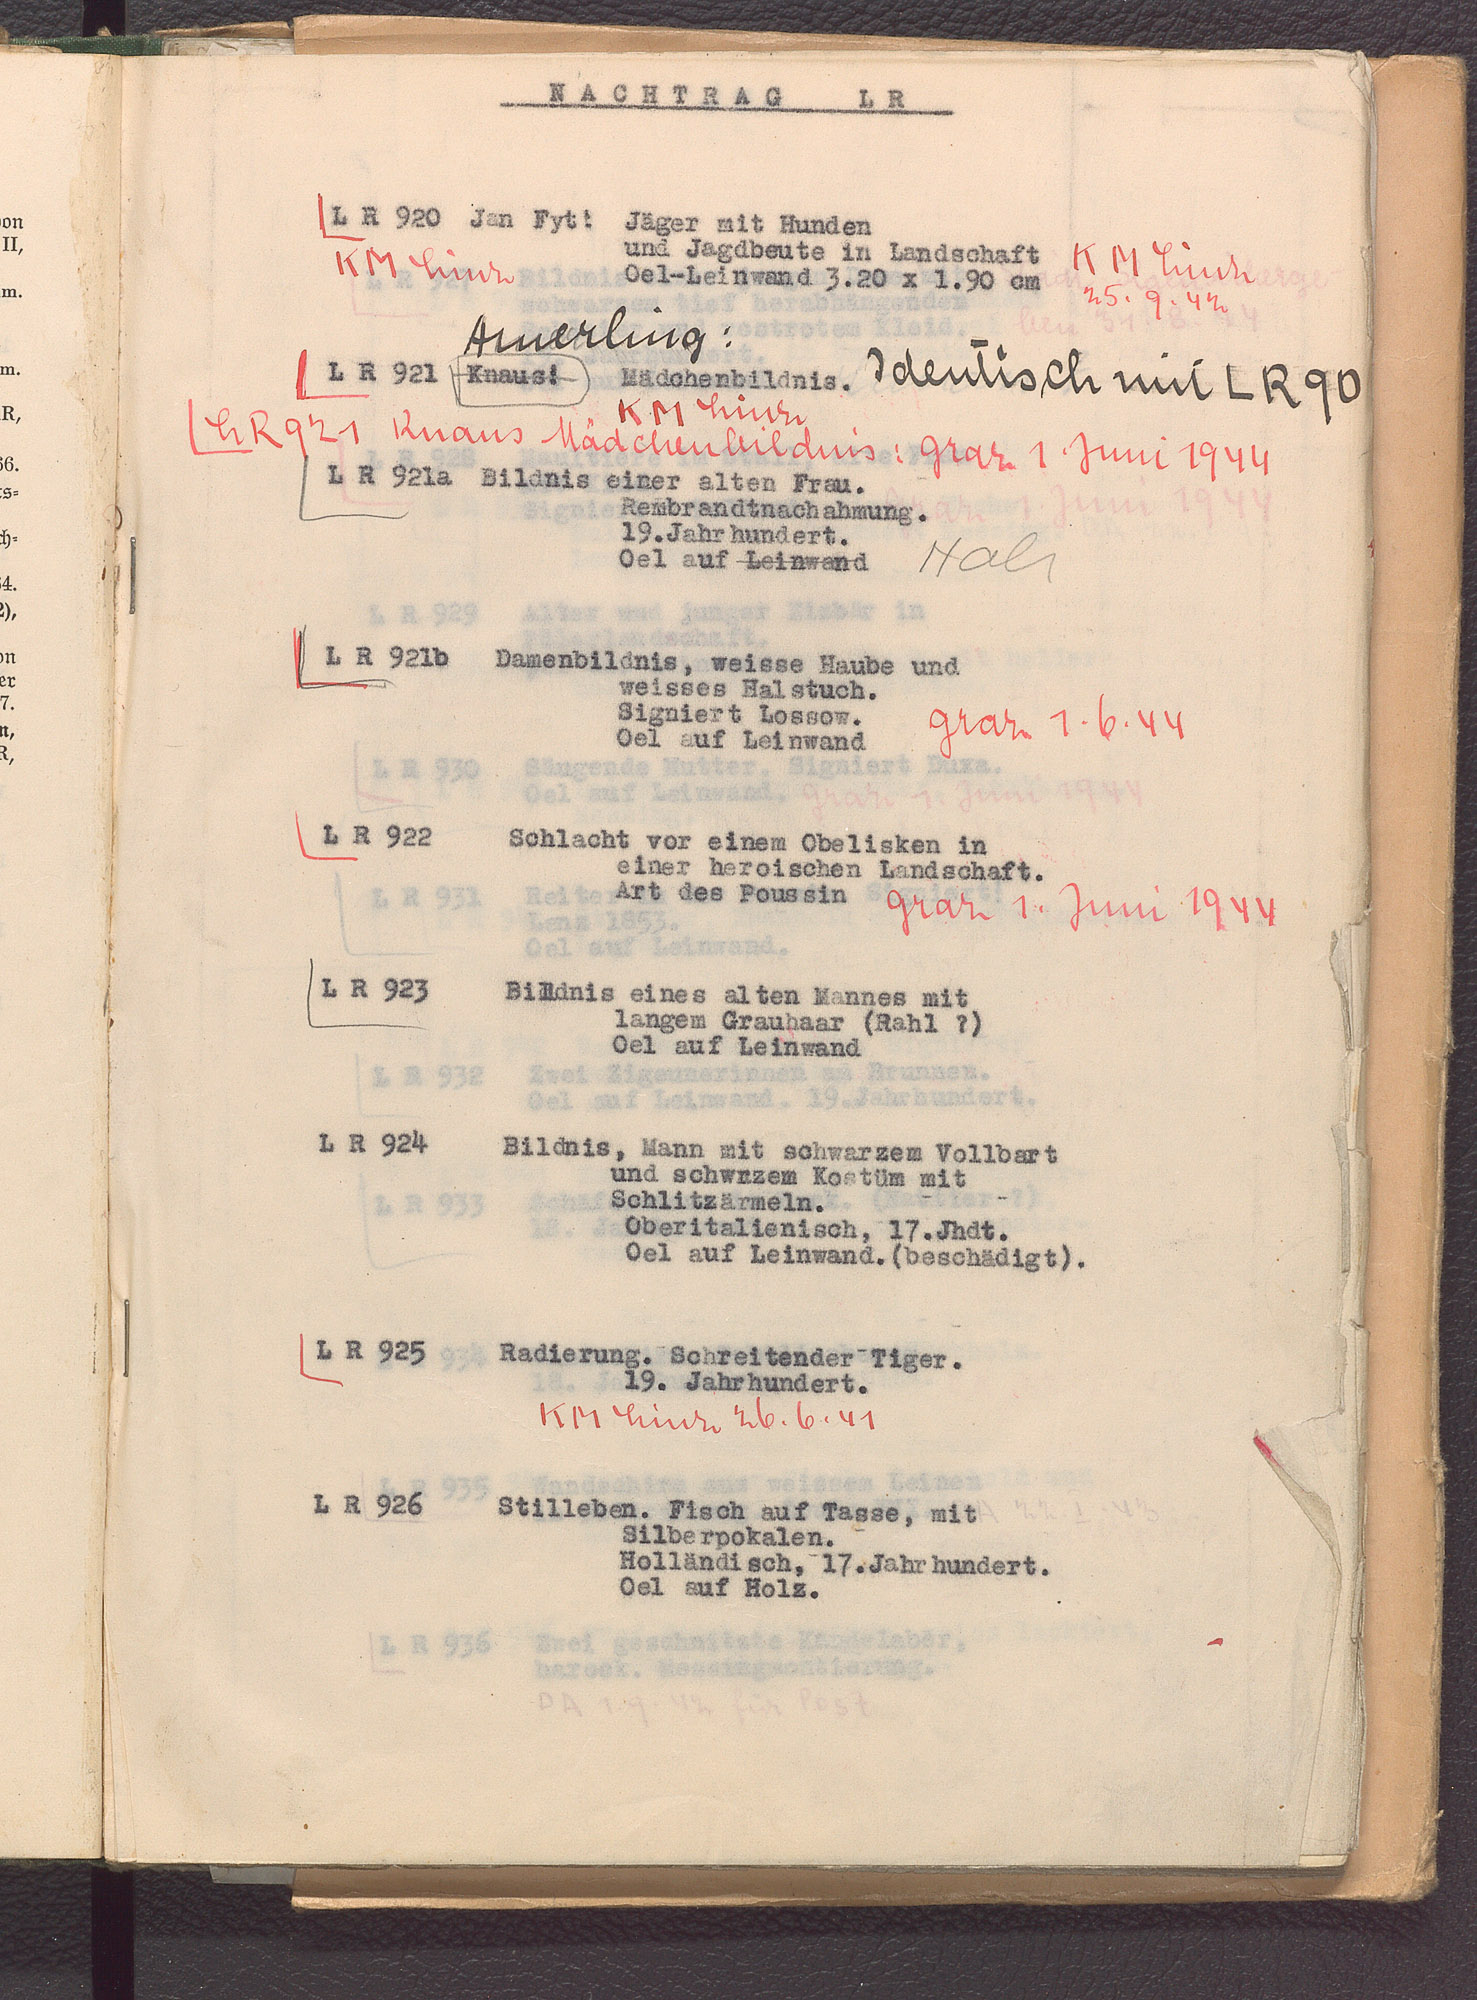 NACHTRAG LR
L R 920 Jan Fyt! Jäger mit Hunden
und Jagdbeute in Landschaft
Oel-Leinwand 3.20 x 1.90 cm
KM Linz
KM Linz
25.9.42
Amerling:
L R 921 Knaus! Mädchenbildnis. Identisch mit LR 90
KM Linz
LR 921 Knaus Mädchenbildnis: Graz 1. Juni 1944
L R 921a Bildnis einer alten Frau.
Rembrandtnachahmung.
19.Jahrhundert.
Oel auf Leinwand Holz
L R 921b Damenbildnis, weisse Haube und
weisses Halstuch.
Signiert Lossow.
Oel auf Leinwand Graz 1.6.44
L R 922 Schlacht vor einem Obelisken in
einer heroischen Landschaft.
Art des Poussin Graz 1. Juni 1944
L R 923 Bildnis eines alten Mannes mit
langem Grauhaar (Rahl ?)
Oel auf Leinwand
L R 924 Bildnis, Mann mit schwarzem Vollbart
und schwrzem Kostüm mit
Schlitzärmeln.
Oberitalienisch, 17.Jhdt.
Oel auf Leinwand.(beschädigt).
L R 925 Radierung. Schreitender Tiger.
19. Jahrhundert.
KM Linz 26.6.41
L R 926 Stilleben. Fisch auf Tasse, mit
Silberpokalen.
Holländisch, 17.Jahrhundert.
Oel auf Holz.